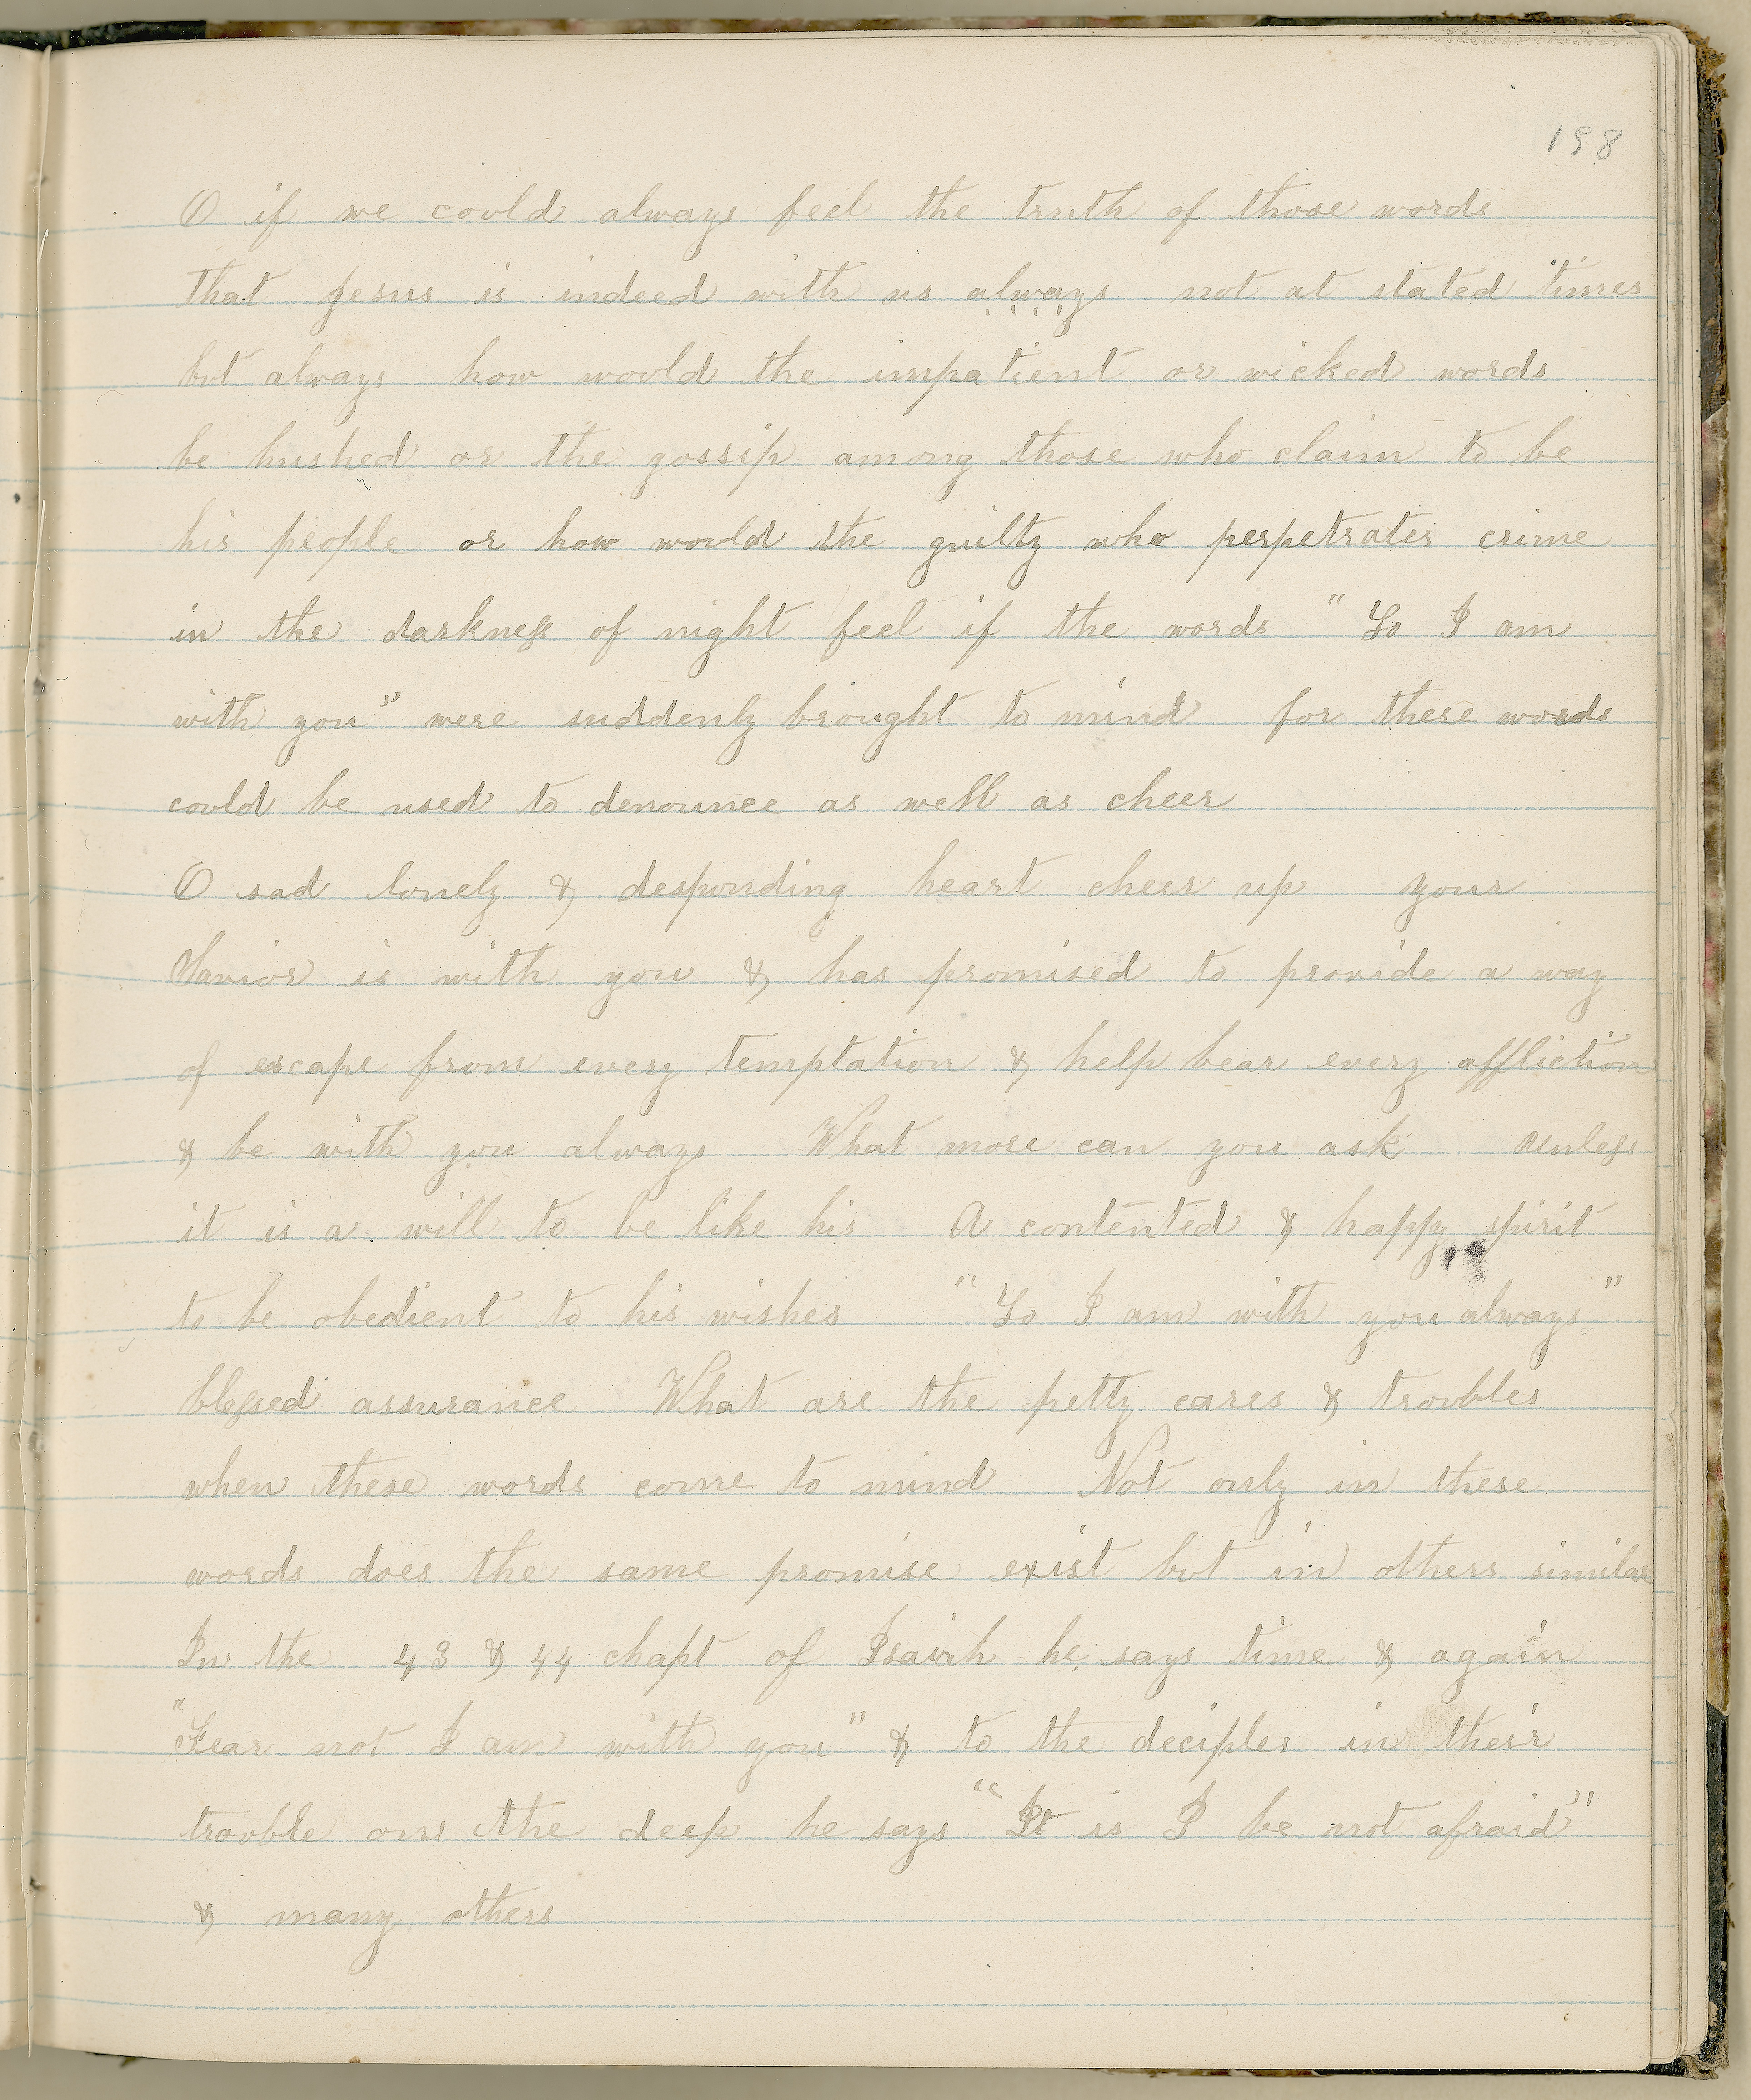 198
O if we could always feel the truth of those words
that Jesus is indeed with us always not at stated times
but always how would the impatient or wicked words
be hushed or the gossip among those who claim to be
his people or how would the guilty who perpetrates crime
in the darkness of night feel if the words "Lo I am
with you" were suddenly brought to mind for these words
could be used to denounce as well as cheer
O sad lonely & desponding heart cheer up your
Savior is with you & has promised to provide a way
of escape from every temptation & help bear every affliction
& be with you always What more can you ask Unless
it is a will to be like his A contented & happy spirit
to be obedient to his wishes "Lo I am with you always"
blessed assurance What are the petty cares & troubles
when these words come to mind Not only in these
words does the same promise exist but in others similar
In the 43 & 44 chapt of Isaiah he says time & again
"Fear not I am with you" & to the deciples in their
trouble on the deep he says "It is I be not afraid"
& many others